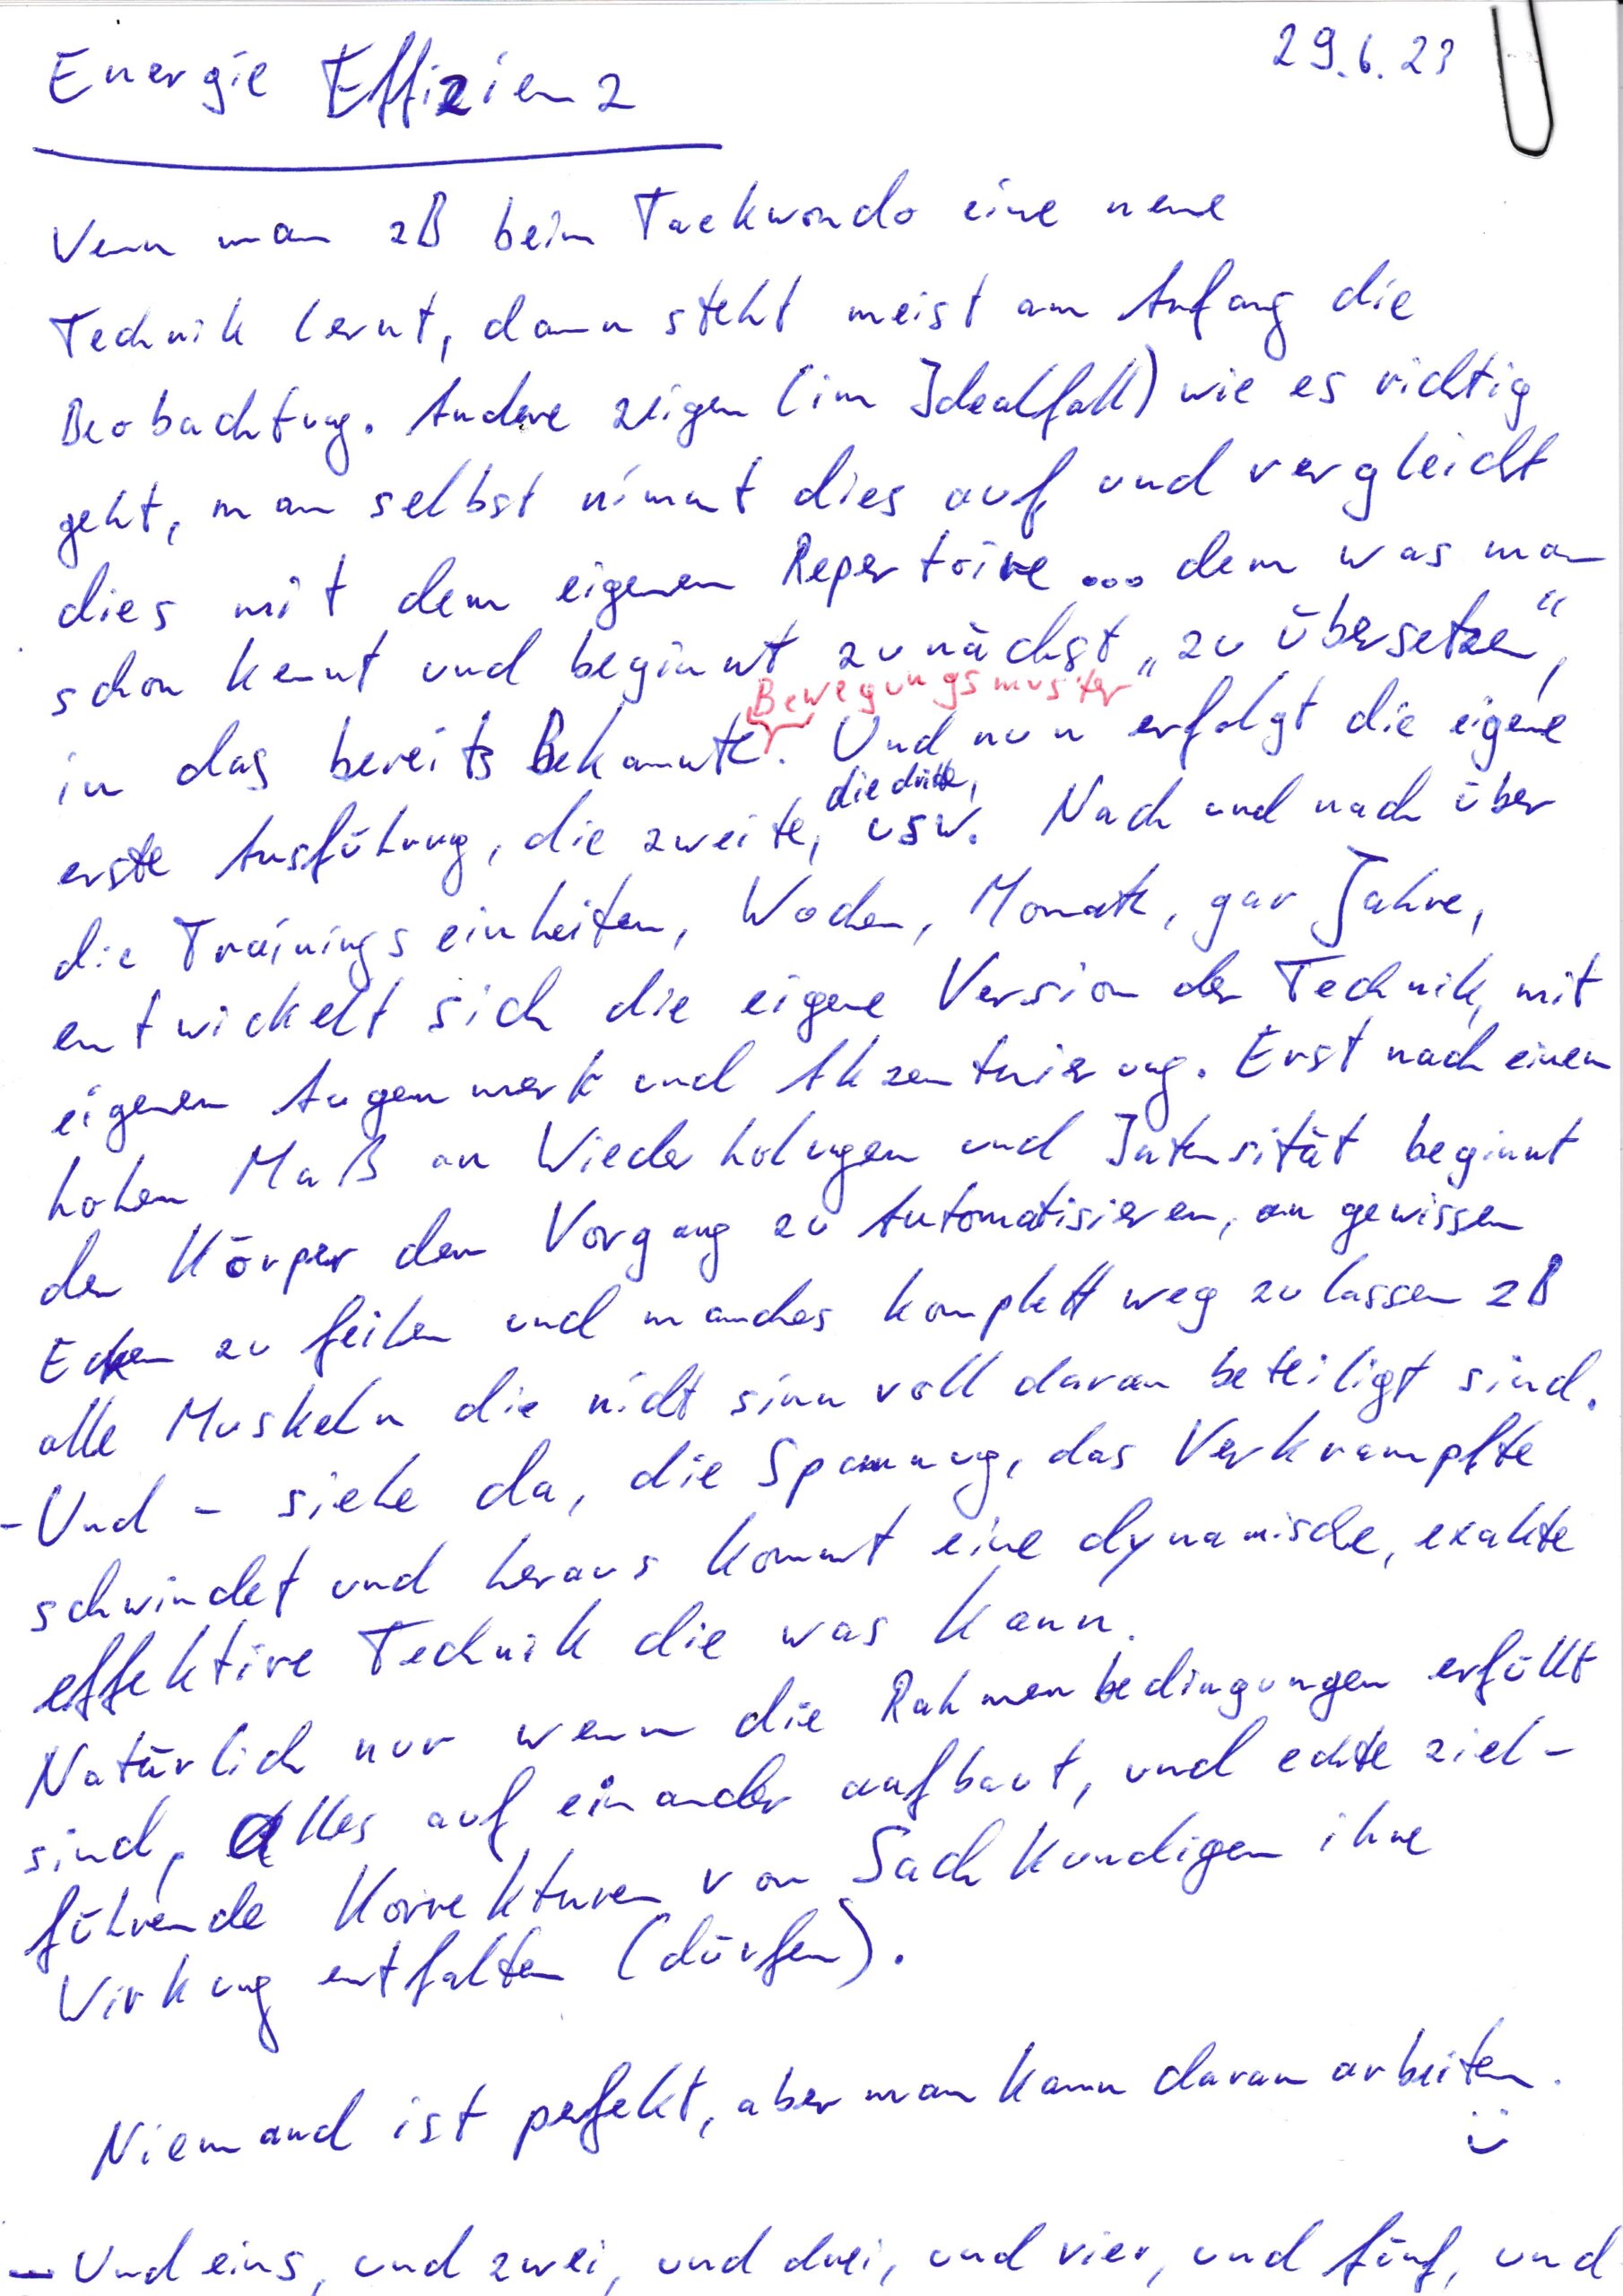 29.6.23
Energie Effizienz
Wenn man zB beim Taekwondo eine neue
Technik lernt, dann steht meist am Anfang die
Beobachtung. Andere zeigen (im Idealfall) wie es richtig
geht, man selbst nimmt dies auf und vergleicht
dies mit dem eigenen Repertoire ... dem was man
schon kennt und beginnt zunächst „zu übersetzen“,
Bewegungsmuster
in das bereits Bekannte. Und nun erfolgt die eigene
die dritte,
erste Ausführung, die zweite, usw. Nach und nach über
die Trainingseinheiten, Wochen, Monate, gar Jahre,
entwickelt sich die eigene Version der Technik, mit
eigenem Augenmerk und Akzentuierung. Erst nach einem
hohen Maß an Wiederholungen und Intensität beginnt
der Körper den Vorgang zu Automatisieren, an gewissen
Ecken zu feilen und manches komplett weg zu lassen zB
alle Muskeln die nicht sinnvoll daran beteiligt sind.
- Und - siehe da, die Spannung, das Verkrampfte
schwindet und heraus kommt eine dynamische, exakte
effektive Technik die was kann.
Natürlich nur wenn die Rahmenbedingungen erfüllt
sind, alles auf einander aufbaut, und echte ziel-
führende Korrekturen von Sachkundigen ihre
Wirkung entfalten (dürfen).
Niemand ist perfekt, aber man kann daran arbeiten.
- Und eins, und zwei, und drei, und vier, und fünf, und